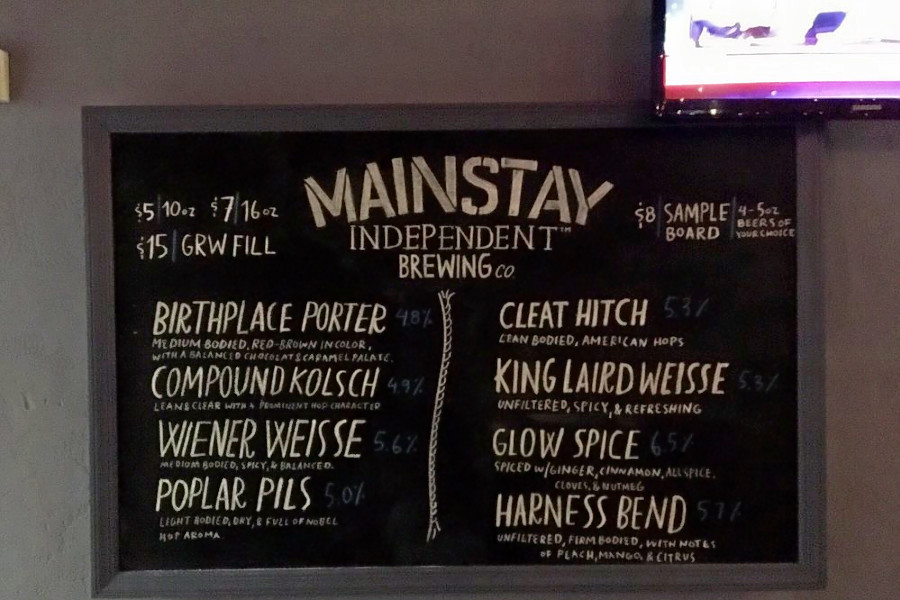 MAINSTAY
INDEPENDENT™
BREWING CO.
$5 | 10oz $7 | 16oz
$15 | GRW FILL
$8 | SAMPLE BOARD | 4-5oz BEERS OF YOUR CHOICE
BIRTHPLACE PORTER 4.8%
MEDIUM BODIED, RED-BROWN IN COLOR,
WITH A BALANCED CHOCOLATE & CARAMEL PALATE.
COMPOUND KOLSCH 4.9%
LEAN & CLEAR WITH A PROMINENT HOP CHARACTER
WIENER WEISSE 5.6%
MEDIUM BODIED, SPICY, & BALANCED.
POPLAR PILS 5.0%
LIGHT BODIED, DRY, & FULL OF NOBEL
HOP AROMA
CLEAT HITCH 5.3%
LEAN BODIED, AMERICAN HOPS
KING LAIRD WEISSE 5.3%
UNFILTERED, SPICY, & REFRESHING
GLOW SPICE 6.5%
SPICED W/GINGER, CINNAMON, ALLSPICE,
CLOVES, & NUTMEG
HARNESS BEND 5.7%
UNFILTERED, FIRM BODIED, WITH NOTES
OF PEACH, MANGO, & CITRUS
SAMSUNG